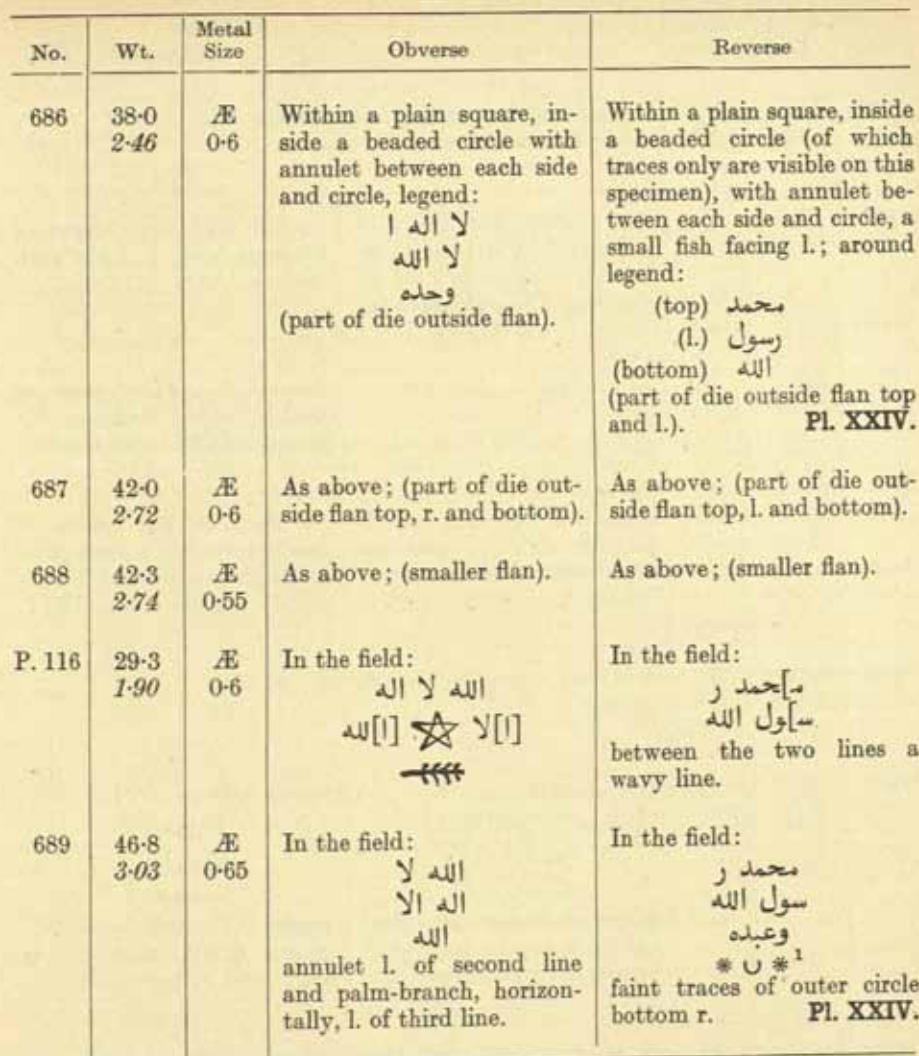 No.
Wt.
Metal
Size
Obverse
Reverse
686
38·0
2·46
Æ
0·6
Within a plain square, in-
side a beaded circle with
annulet between each side
and circle, legend:
لا اله ا
لا الله
وحده
(part of die outside flan).
Within a plain square, inside
a beaded circle (of which
traces only are visible on this
specimen), with annulet be-
tween each side and circle, a
small fish facing l.; around
legend:
(top) محمد
(l.) رسول
(bottom) الله
(part of die outside flan top
and l.). Pl. XXIV.
687
42·0
2·72
Æ
0·6
As above; (part of die out-
side flan top, r. and bottom).
As above; (part of die out-
side flan top, l. and bottom).
688
42·3
2·74
Æ
0·55
As above; (smaller flan).
As above; (smaller flan).
P. 116
29·3
1·90
Æ
0·6
In the field:
الله لا اله
[ا]لا [ا]لله
In the field:
م]حمد ر
س]ول الله
between the two lines a
wavy line.
689
46·8
3·03
Æ
0·65
In the field:
الله لا
اله الا
الله
annulet l. of second line
and palm-branch, horizon-
tally, l. of third line.
In the field:
محمد ر
سول الله
وعبده
* ∪ * 1
faint traces of outer circle
bottom r. Pl. XXIV.